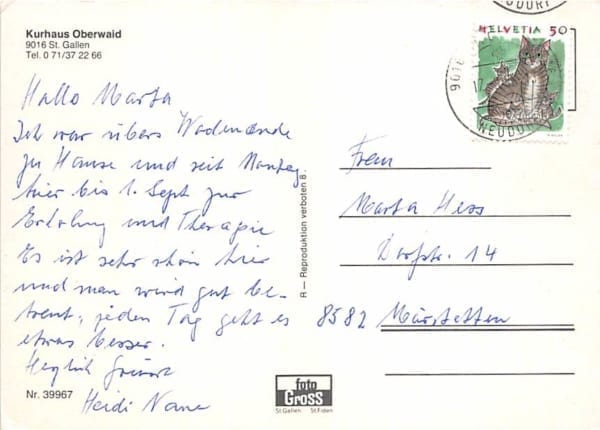 Kurhaus Oberwaid
9016 St. Gallen
Tel. 0 71/37 22 66
Hallo Marta
Ich war übers Wochenende
zu Hause und seit Montag
hier bis 1. Sept zur
Erholung und Therapie
Es ist sehr schön hier
und man wird gut be-
treut, jeden Tag geht es
etwas besser.
Herzlich Grüsst
Heidi
Nr. 39967
R — Reproduktion verboten 8.
foto
GROSS
St.Gallen St.Fiden
HELVETIA 50
9016
NEUDORF
Frau
Marta Hess
Dorfstr. 14
8582 Märstetten